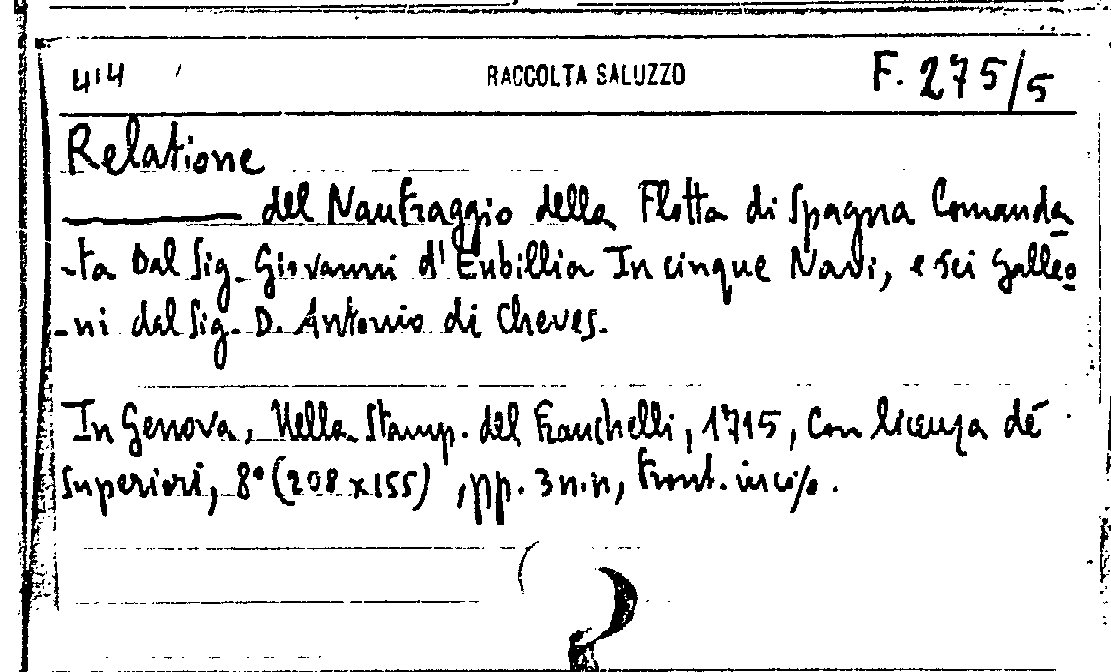 414 RACCOLTA SALUZZO F. 275/5
Relatione
del Naufraggio della Flotta di Spagna Comanda
-ta Dal Sig. Giovanni d'Eubillia In cinque Navi, e sei Galleo
-ni del Sig. D. Antonio di Cheves.
In Genova, Nella Stamp. del Franchelli, 1715, Con licenza de'
Superiori, 8° (208x155), pp. 3 n.n, Front.